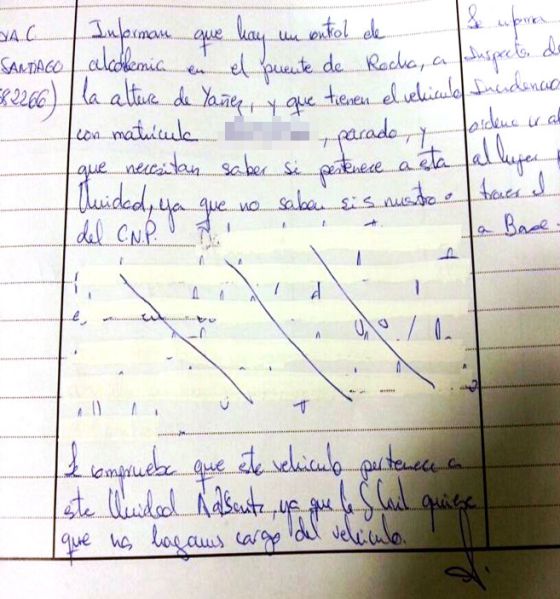 VA C
SANTAGO
582266)
Informan que hay un control de
alcoholemia en el puente de Rocha, a
la altura de Yañez, y que tienen el vehiculo
con matricula , parado, y
que necesitan saber si pertenece a esta
Unidad, ya que no saben si es nuestro o
del C.N.P.
Se informa
Inspector de
Incidencias
ordena ir al
al lugar
traer el
a Base
Se comprueba que este vehiculo pertenece a
este Unidad , ya que la G. Civil quiere
que nos hagamos cargo del vehiculo.